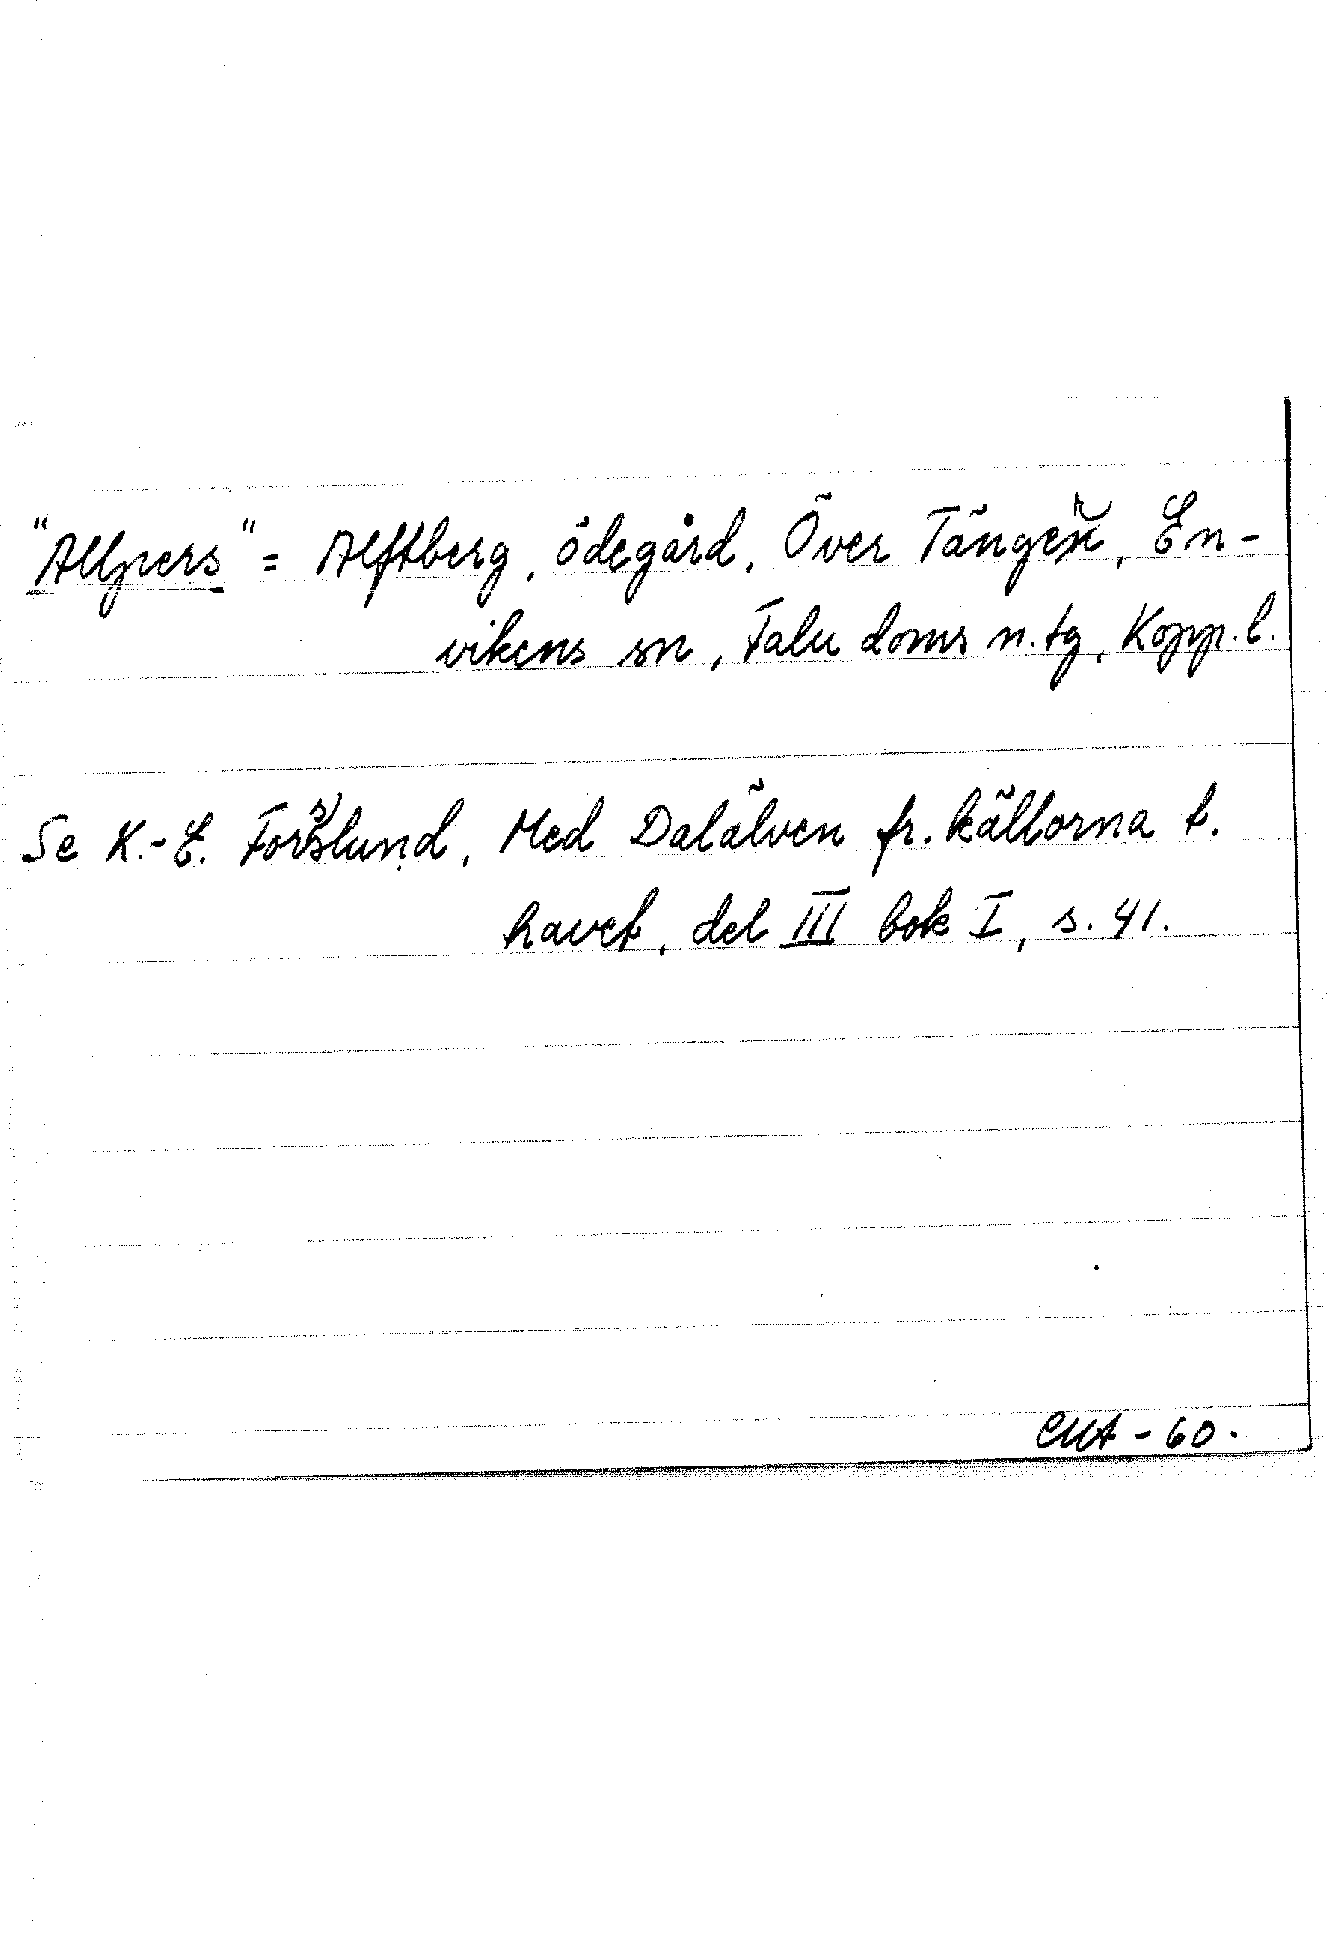 "Allpers" = Alftberg, ödegård, Över Tängen, En-
vikens sn, Falu doms n. tg, Kopp. l.
Se K.-E. Forslund, Med Dalälven fr. källorna t.
havet, del III bok I, s. 41.
- 60.